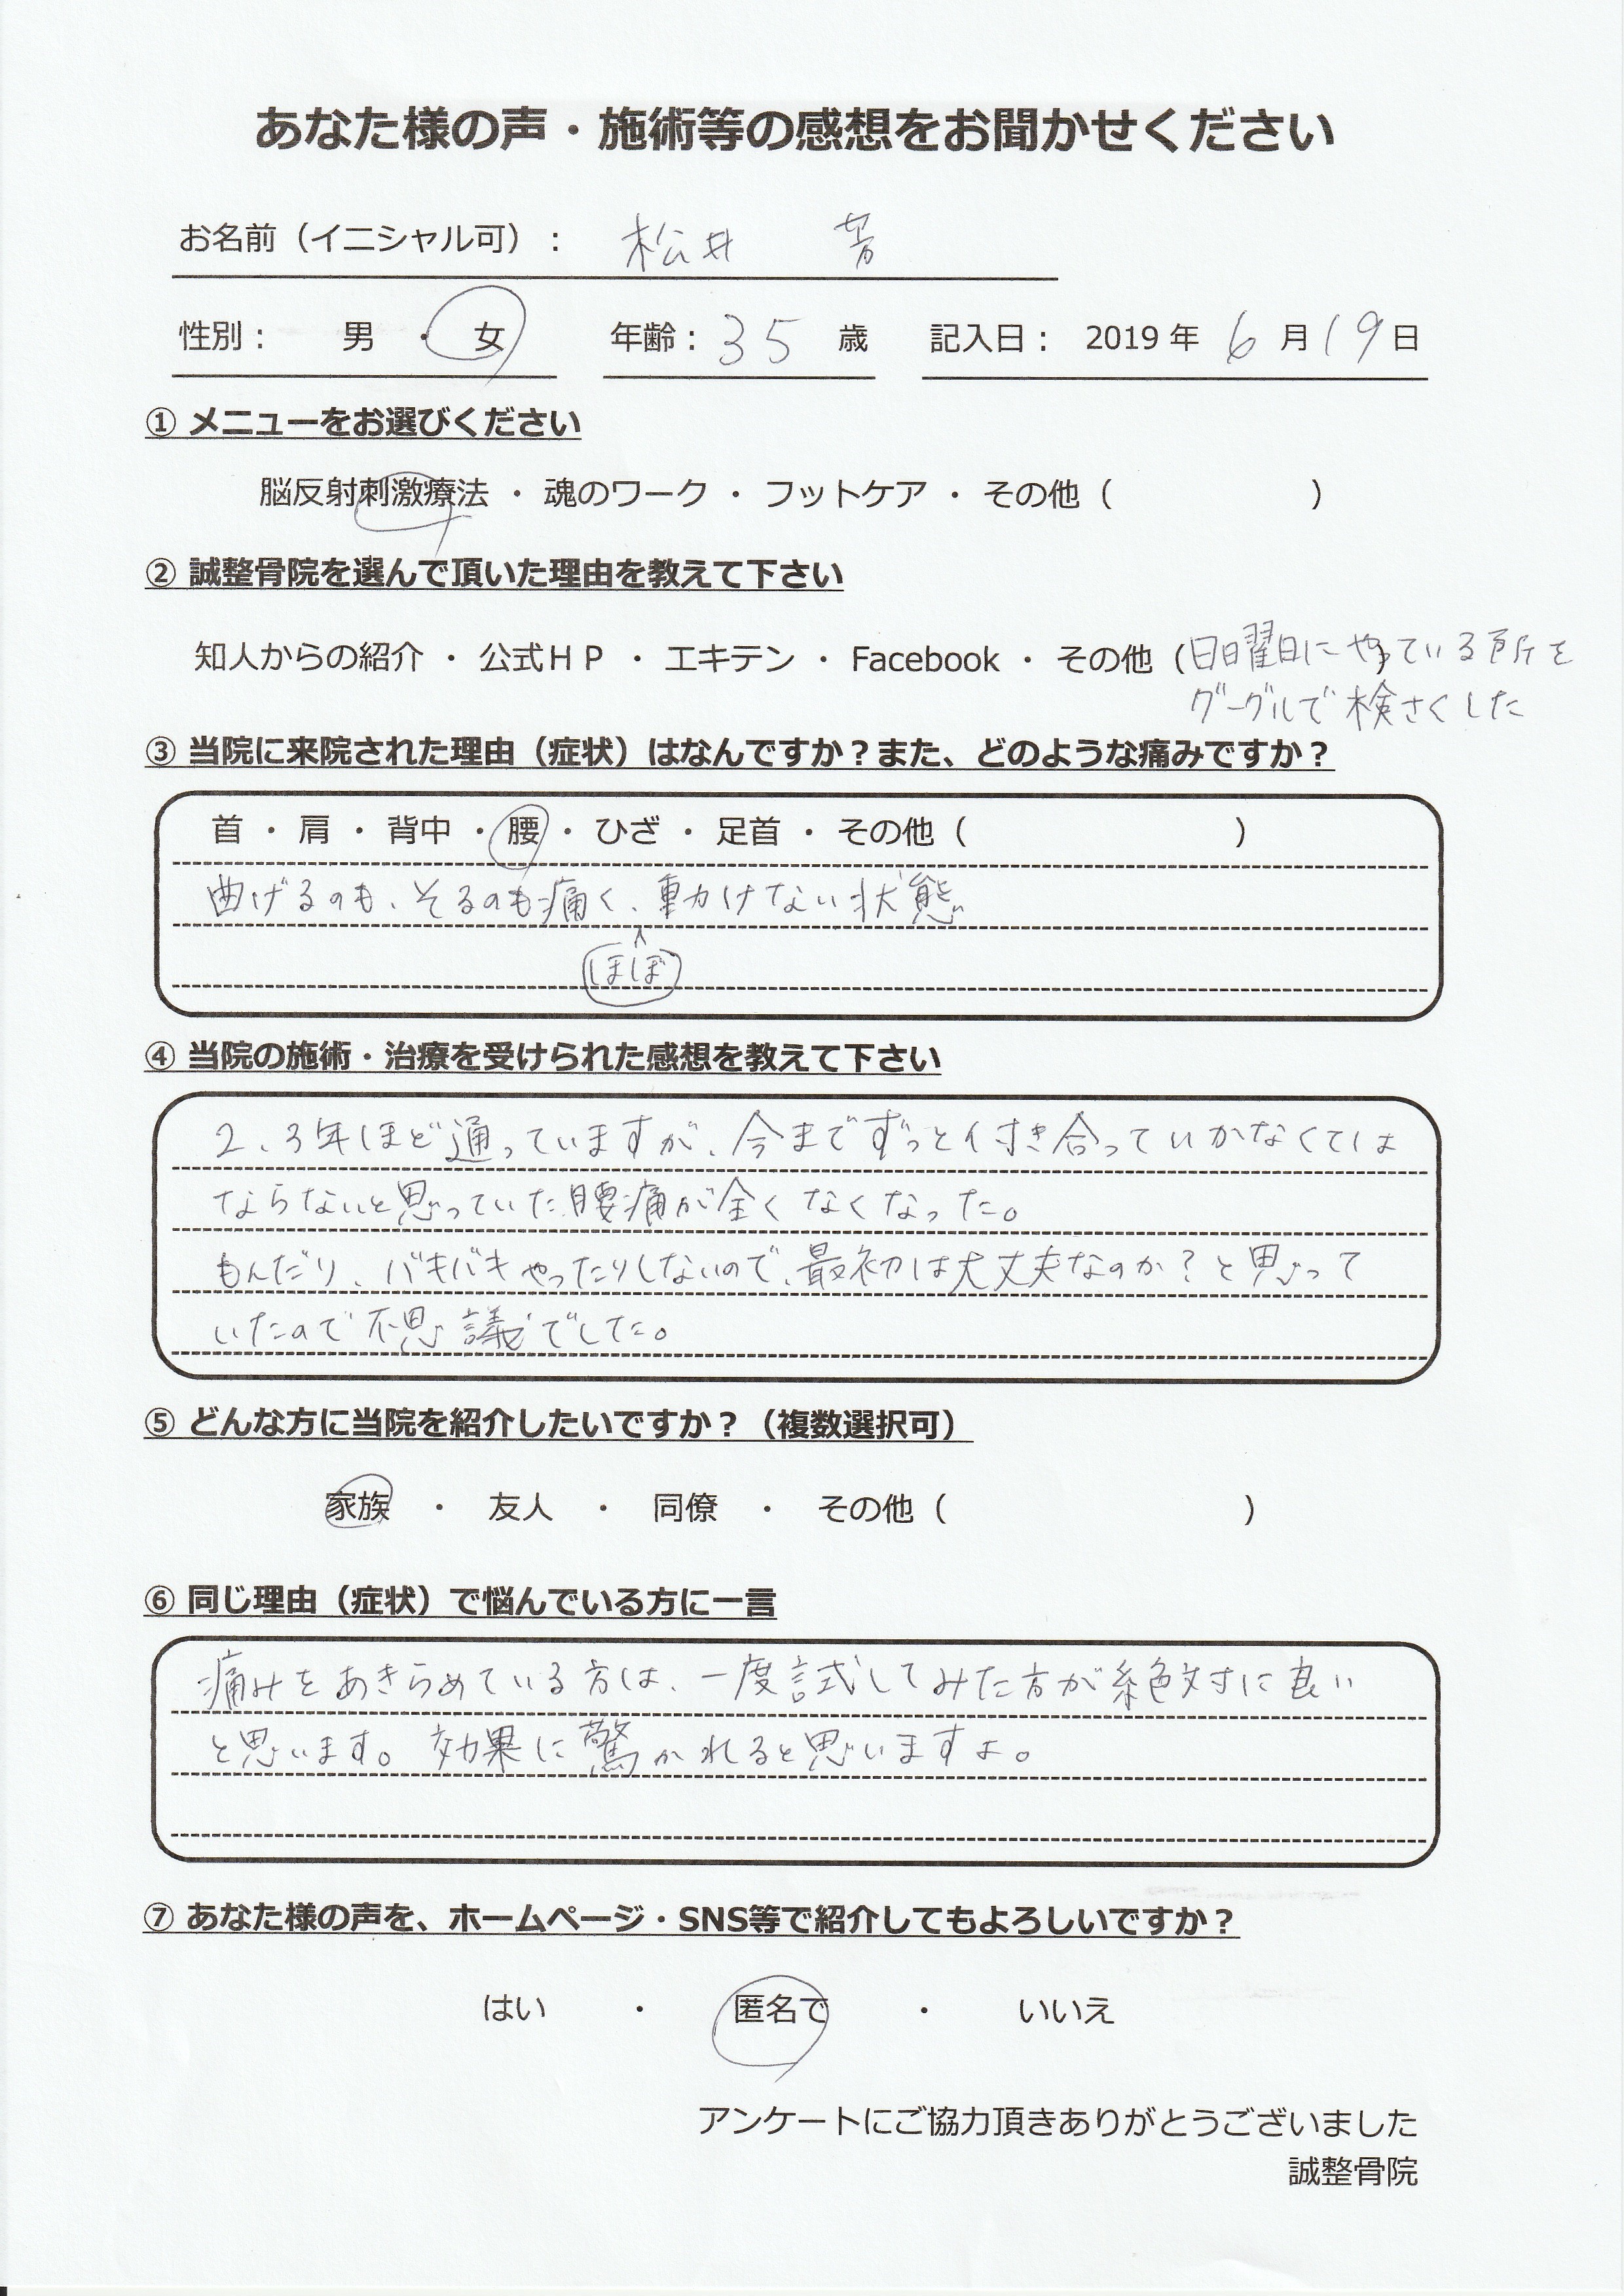 あなた様の声・施術等の感想をお聞かせください
お名前（イニシャル可）： 松井 芳
性別： 男 ・ 女 年齢：35 歳 記入日： 2019 年 6 月 19 日
① メニューをお選びください
脳反射刺激療法 ・ 魂のワーク ・ フットケア ・ その他（ ）
② 誠整骨院を選んで頂いた理由を教えて下さい
知人からの紹介 ・ 公式ＨＰ ・ エキテン ・ Facebook ・ その他（日曜日にやっている所を）
グーグルで検さくした
③ 当院に来院された理由（症状）はなんですか？また、どのような痛みですか？
首 ・ 肩 ・ 背中 ・ 腰 ・ ひざ ・ 足首 ・ その他（ ）
曲げるのも、そるのも痛く、動かけない状態
ほぼ
④ 当院の施術・治療を受けられた感想を教えて下さい
2、3年ほど通っていますが、今までずっと付き合っていかなくては
ならないと思っていた腰痛が全くなくなった。
もんだり、バキバキやったりしないので、最初は大丈夫なのか？と思って
いたので不思議でした。
⑤ どんな方に当院を紹介したいですか？（複数選択可）
家族 ・ 友人 ・ 同僚 ・ その他（ ）
⑥ 同じ理由（症状）で悩んでいる方に一言
痛みをあきらめている方は、一度試してみた方が絶対に良い
と思います。効果に驚かれると思いますよ。
⑦ あなた様の声を、ホームページ・SNS等で紹介してもよろしいですか？
はい ・ 匿名で ・ いいえ
アンケートにご協力頂きありがとうございました
誠整骨院